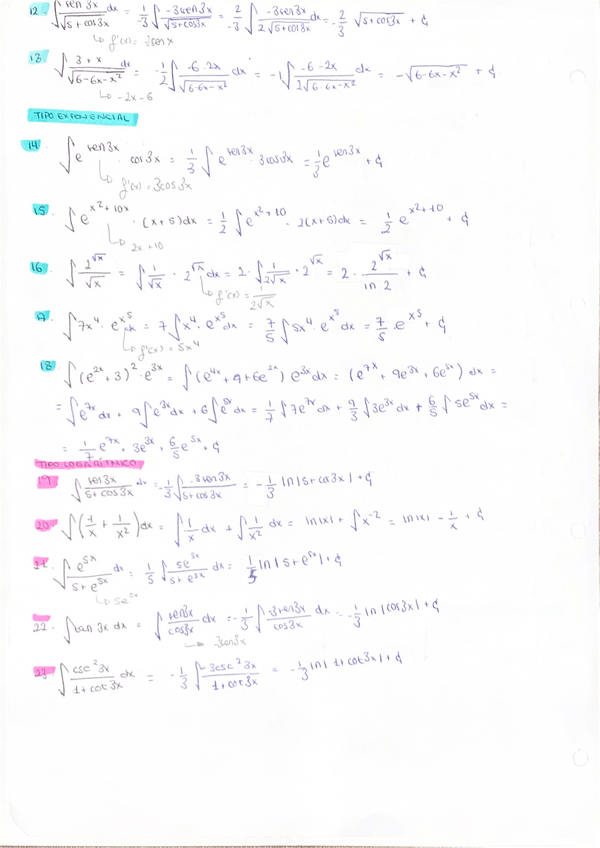 12. ∫ sen 3x / √(5 + cos3x) dx = 1/-3 ∫ -3sen3x / √(5+cos3x) = 2/-3 ∫ -3sen3x dx / 2√(5+cos3x) = -2/3 √(5+cos3x) + C
↳ f'(x) =
13 ∫ (3 + x) dx / √(6-6x-x²) = -1/2 ∫ (-6-2x) / √(6-6x-x²) dx = -1 ∫ (-6-2x) / 2√(6-6x-x²) dx = -√(6-6x-x²) + C
↳ -2x-6
TIPO EXPONENCIAL
14. ∫ e^(sen3x) · cos3x = 1/3 ∫ e^(sen3x) · 3cos3x = 1/3 e^(sen3x) + C
↳ f'(x) = 3cos3x
15. ∫ e^(x²+10x) · (x+5)dx = 1/2 ∫ e^(x²+10) · 2(x+5)dx = 1/2 e^(x²+10) + C
↳ 2x+10
16. ∫ 2^√x / √x = ∫ 1/√x · 2^√x dx = 2 · ∫ 1/(2√x) · 2^√x = 2 · 2^√x / ln 2 + C
↳ f'(x) = 1/(2√x)
17. ∫ 7x⁴ · e^(x⁵) dx = 7 ∫ x⁴ · e^(x⁵) dx = 7/5 ∫ 5x⁴ · e^(x⁵) dx = 7/5 · e^(x⁵) + C
↳ f'(x) = 5x⁴
18. ∫ (e^(2x) + 3)² · e^(3x) = ∫ (e^(4x) + 9 + 6e^(2x)) e^(3x) dx = (e^(7x) + 9e^(3x) + 6e^(5x)) dx =
= ∫ e^(7x) dx + 9 ∫ e^(3x) dx + 6 ∫ e^(5x) dx = 1/7 ∫ 7e^(7x) dx + 9/3 ∫ 3e^(3x) dx + 6/5 ∫ 5e^(5x) dx =
= 1/7 e^(7x) + 3e^(3x) + 6/5 e^(5x) + C
TIPO LOGARÍTMICO
19. ∫ sen3x / (5+cos3x) dx = -1/3 ∫ -3sen3x / (5+cos3x) = -1/3 ln|5+cos3x| + C
20. ∫ (1/x + 1/x²) dx = ∫ 1/x dx + ∫ 1/x² dx = ln|x| + ∫ x^-2 = ln|x| - 1/x + C
21. ∫ e^(5x) / (5 + e^(5x)) dx = 1/5 ∫ 5e^(5x) / (5 + e^(5x)) dx = 1/5 ln|5 + e^(5x)| + C
↳ 5e^(5x)
22. ∫ tan 3x dx = ∫ sen3x / cos3x dx = -1/3 ∫ -3sen3x / cos3x dx = -1/3 ln|cos3x| + C
23. ∫ csc²3x / (1+cot3x) dx = -1/3 ∫ 3csc²3x / (1+cot3x) = -1/3 ln|1+cot3x| + C